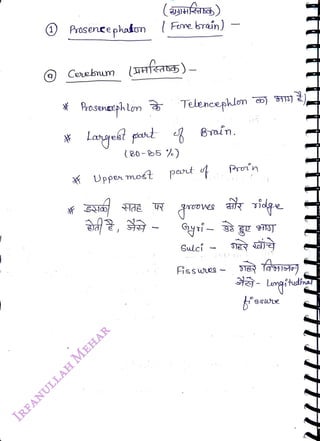 (अग्रमस्तिष्क)
① Prosencephalon ( Fore brain) –
ⓐ Cerebrum (प्रमस्तिष्क) –
* Prosencephlon के Telencephlon का भाग है)
* Largest part of Brain.
(80-85 %)
* Uppermost part of Brain
* इसकी सतह पर grooves और ridge
होती है, जैसे – Gyri – उठे हुए भाग
Sulci – गहरे खाँचे
Fissures – गहरे विभाजन
जैसे – Longitudinal
fissure
IRFANULLAH MEHAR